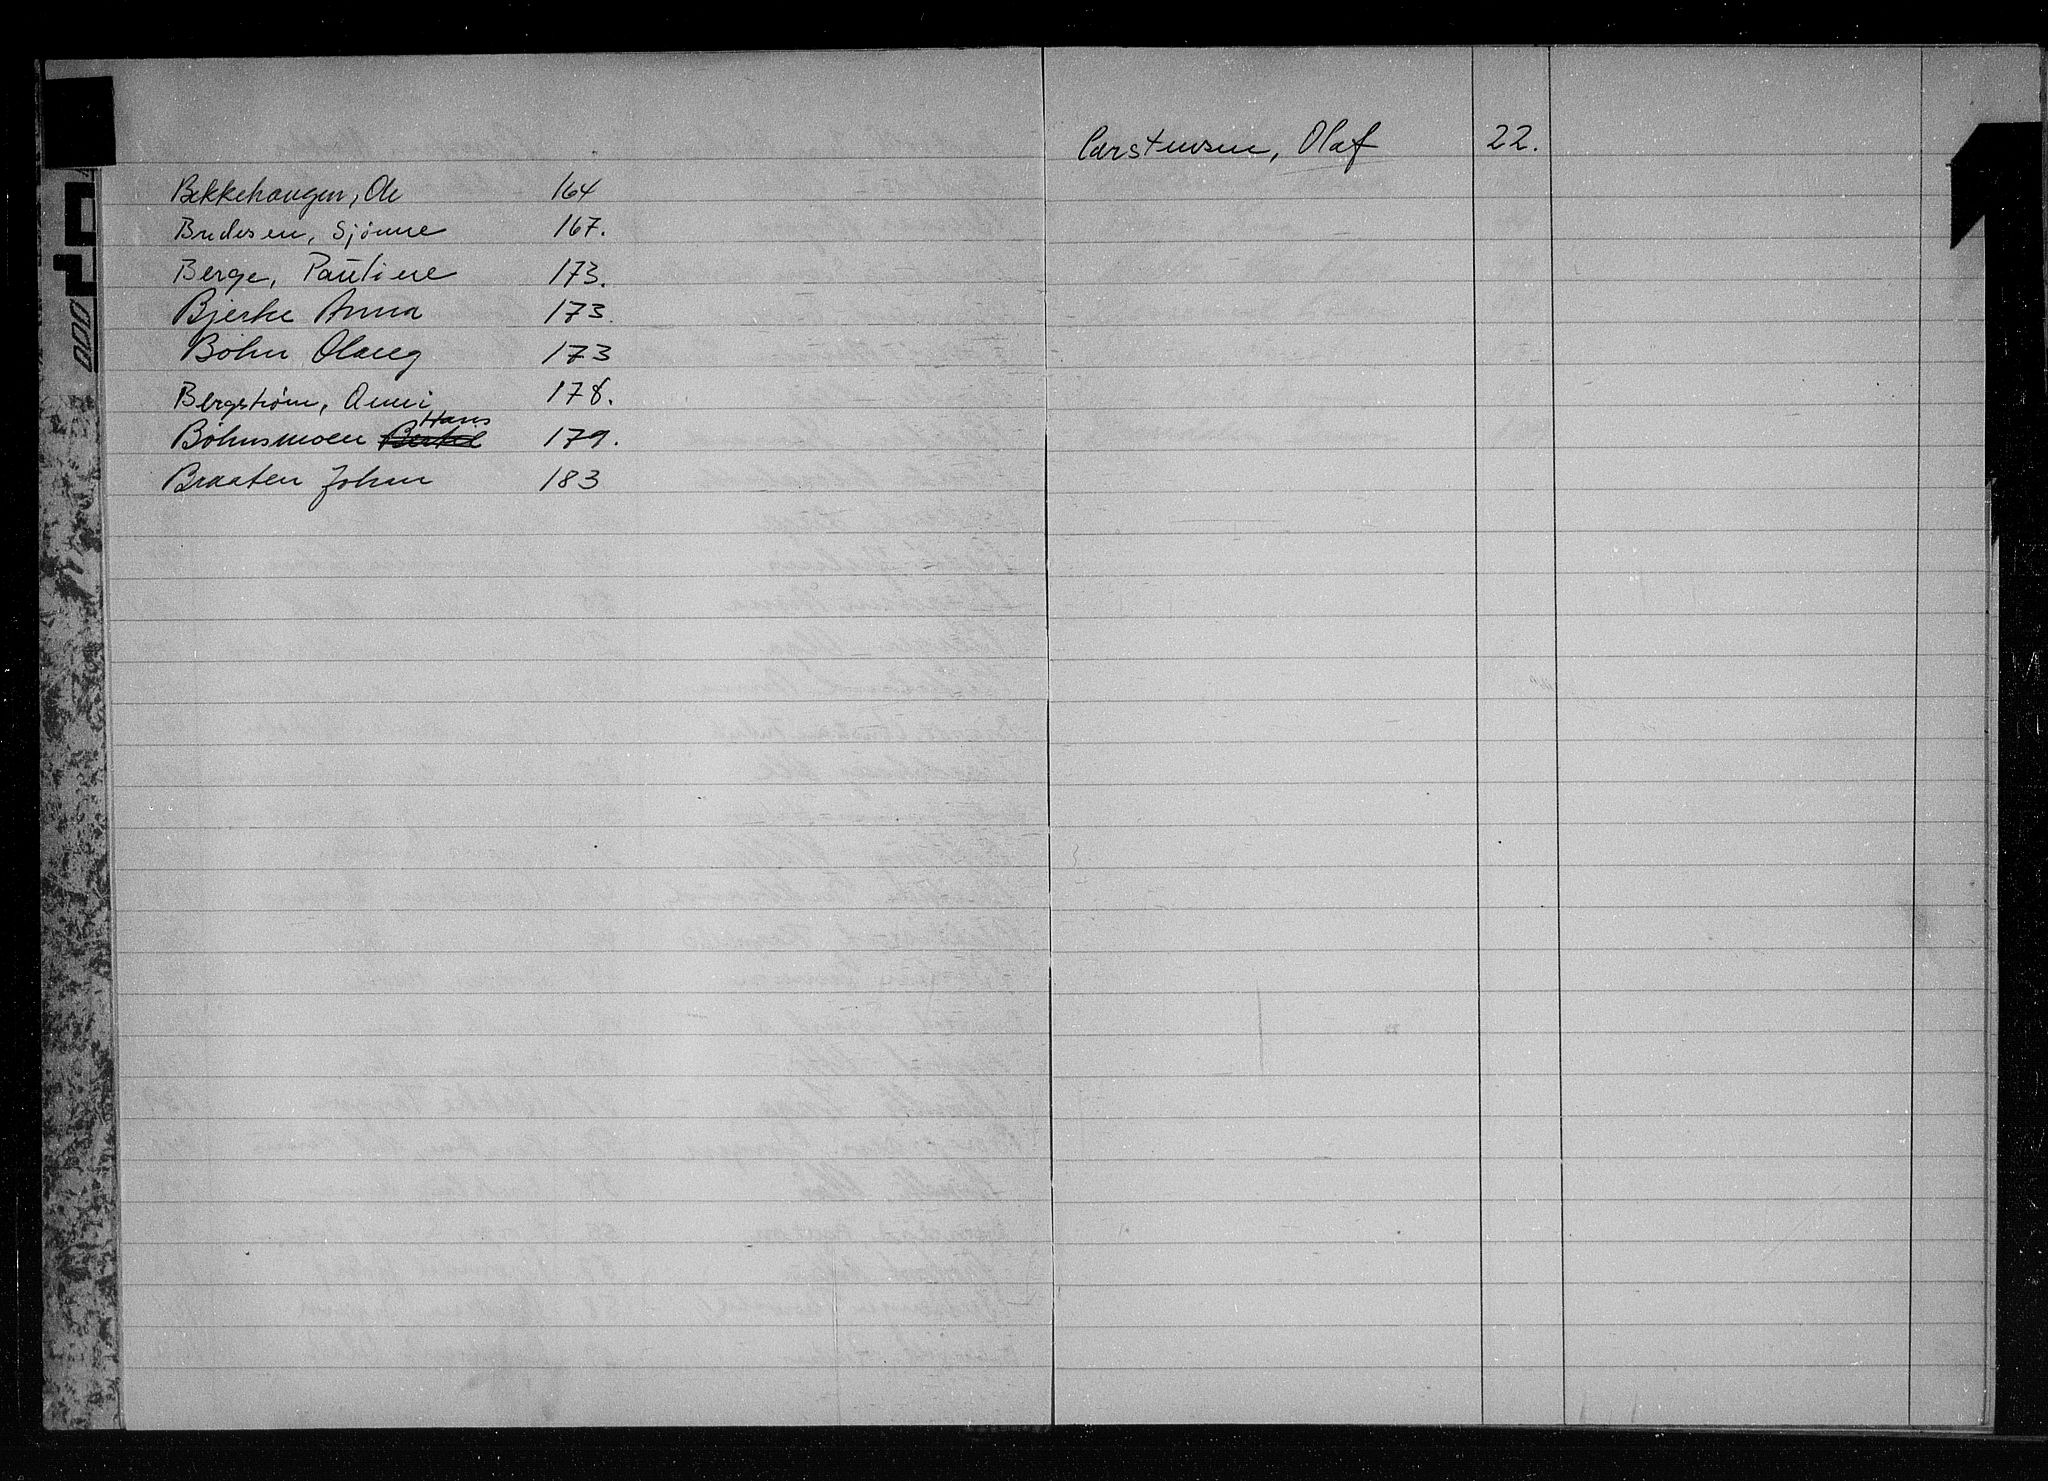 Bekkehaugen, Ole 164
Bredesen, Sjønne 167.
Berge, Pauline 173.
Bjerke Anna 173.
Bøhn Olaug 173
Bergstrøm, Anni 178.
Bøhnsmoen Bertel Hans 179.
Braaten Johan 183
Carstensen, Olaf 22.